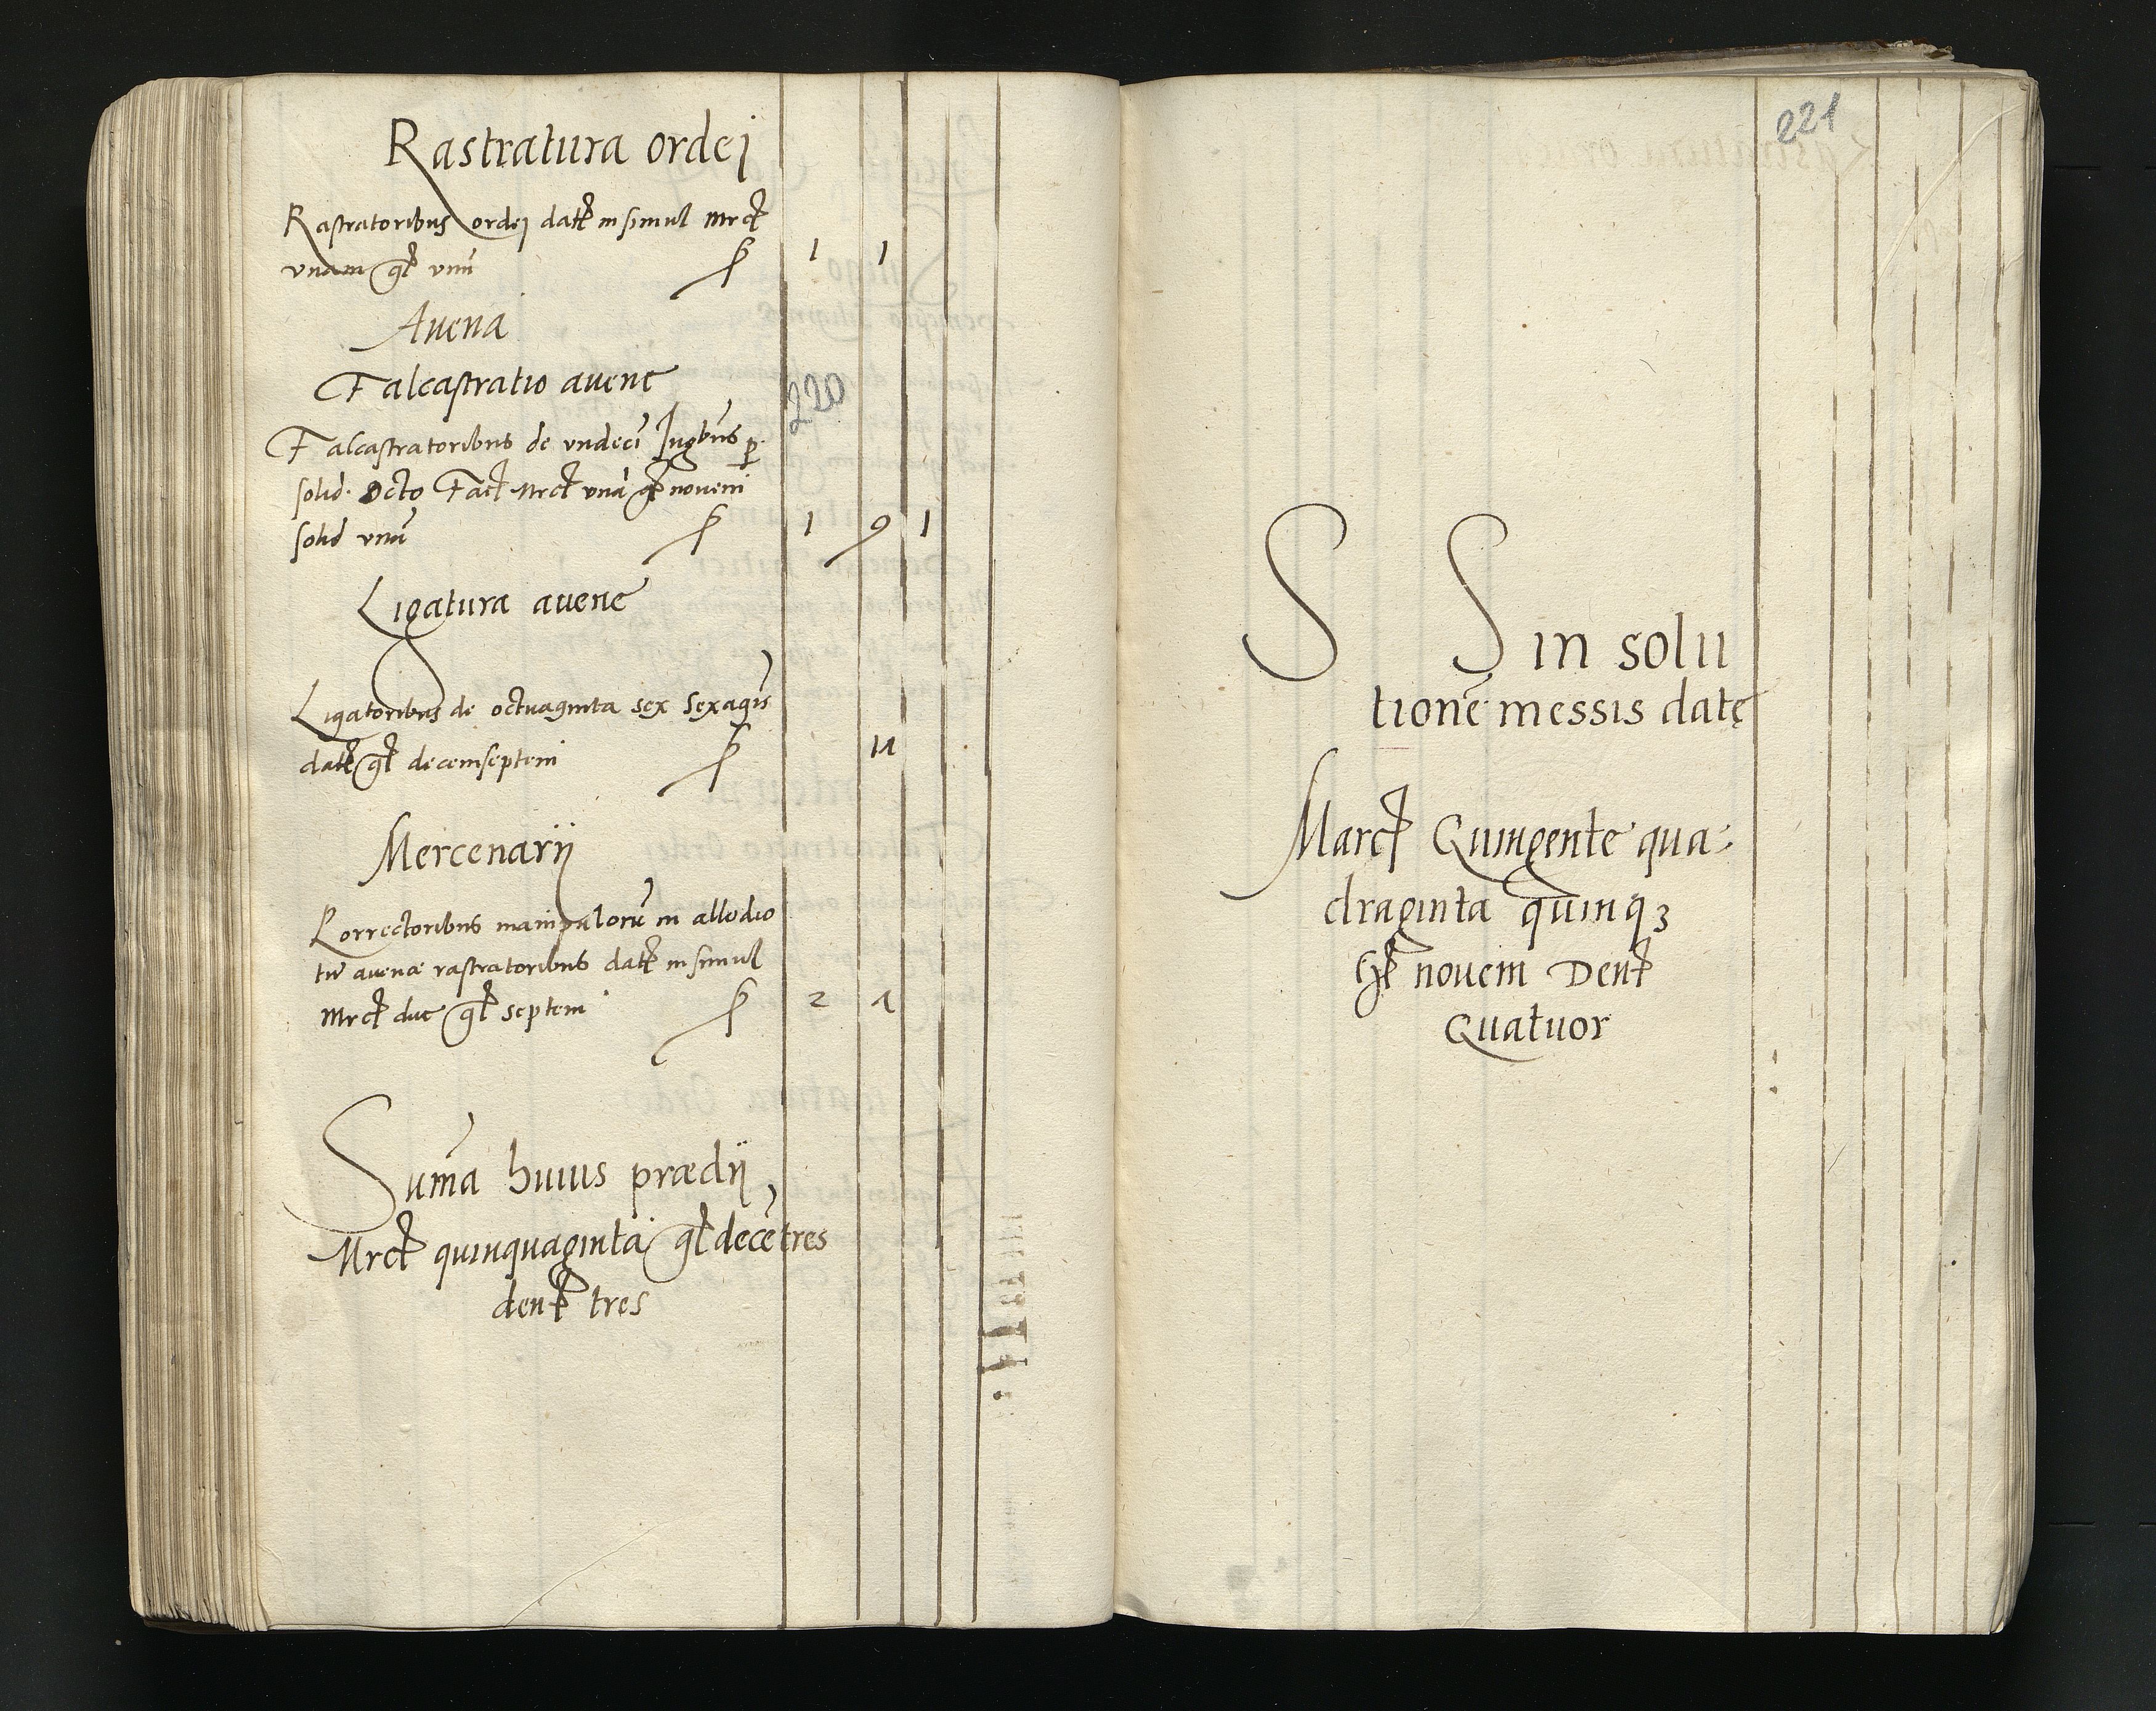 Rastratura ordej
Rastratoribus ordej dat insimul Mrc
vnam gr vnu 1 1
Auena
Falcastratio auene
220
Falcastratoribus de vndeci Iugbus p
solid. Octo Fact Mrc vna gr novem
solid vnu 1 9 1
Ligatura auene
Ligatoribus de octuaginta sex sexagis
dat gr decemseptem 1Λ
Mercenarij
Porrectoribus manipuloru in allodio
tu auenæ rastratoribus dat insimul
Mrc due gr septem 2 Λ
Suma huius prædij
Mrc quinquaginta gr dece tres
den tres
221
S S in solu
tione messis datę
Marc Quingente qua:
draginta quinqꝫ
gr nouem Den
Quatuor